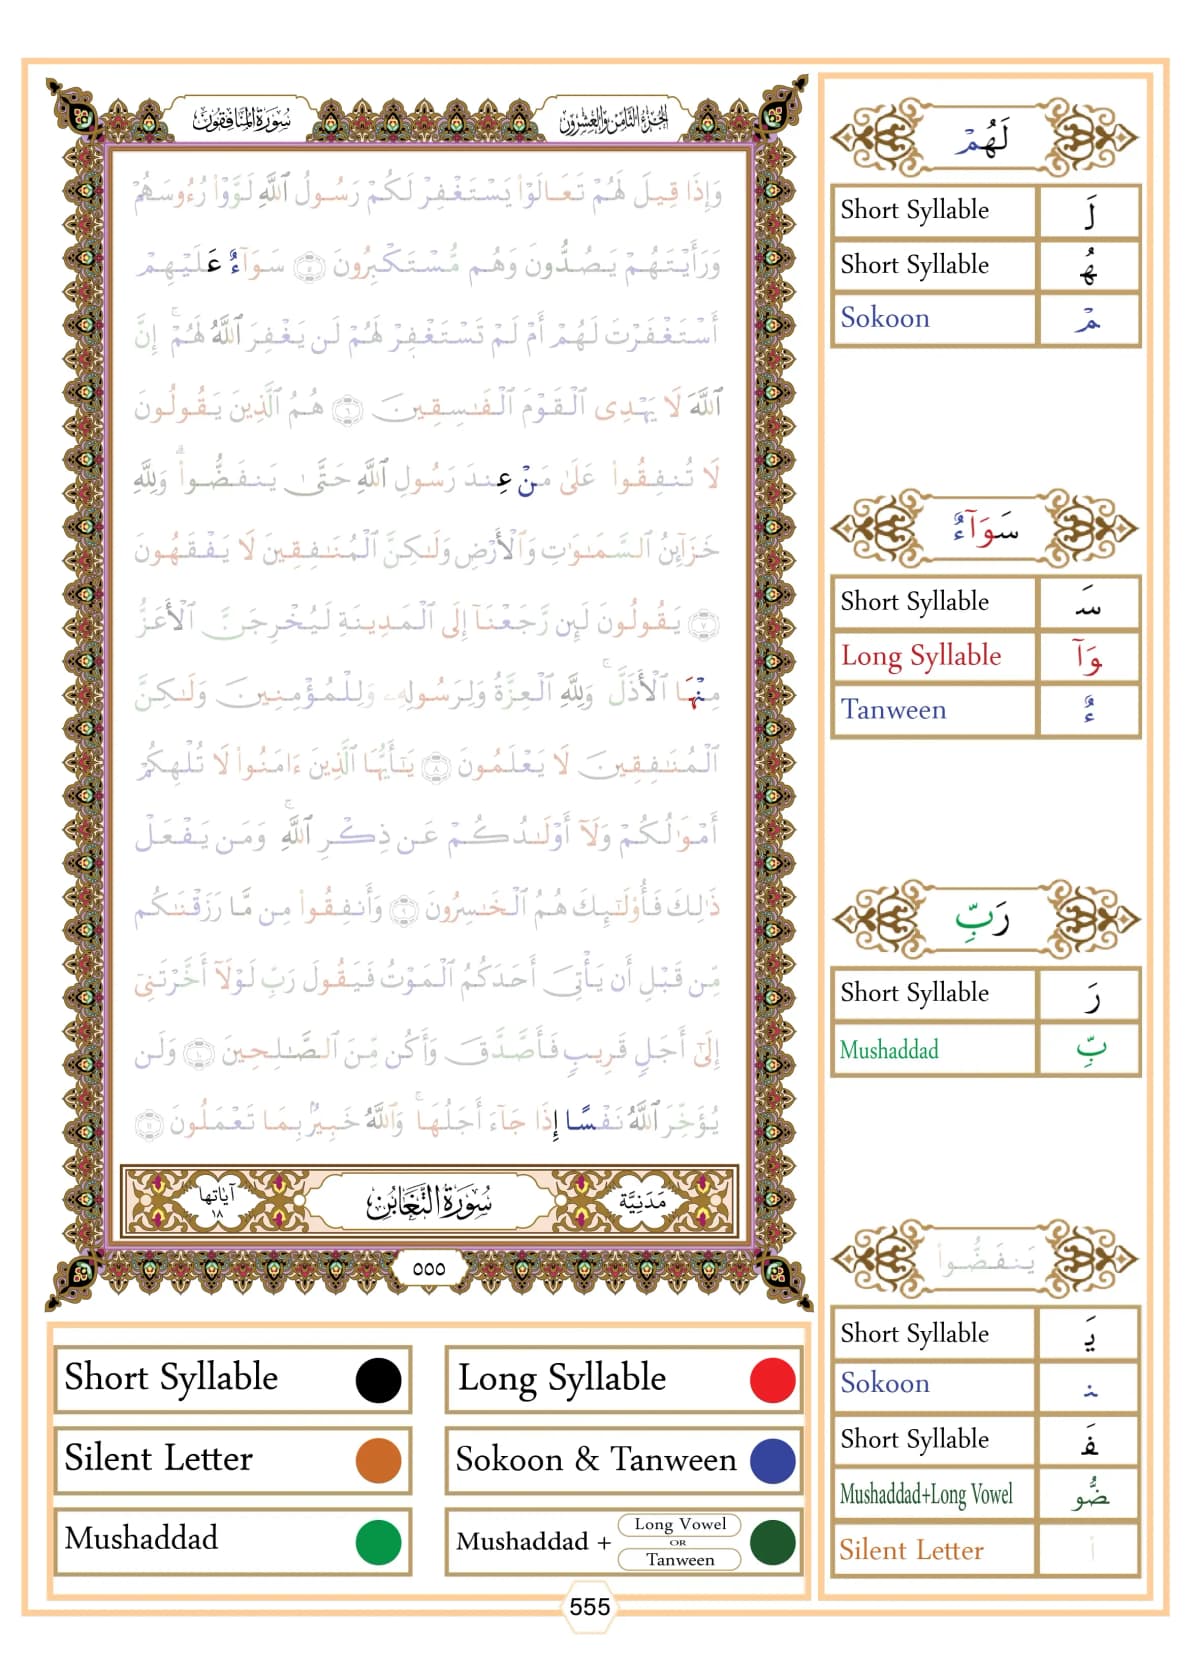 سُورَةُ المُنَافِقُون
الجُزْءُ الثَّامِنُ وَالعِشْرُون
وَإِذَا قِيلَ لَهُمْ تَعَالَوْا۟ يَسْتَغْفِرْ لَكُمْ رَسُولُ ٱللَّهِ لَوَّوْا۟ رُءُوسَهُمْ
وَرَأَيْتَهُمْ يَصُدُّونَ وَهُم مُّسْتَكْبِرُونَ ٥ سَوَآءٌ عَلَيْهِمْ
أَسْتَغْفَرْتَ لَهُمْ أَمْ لَمْ تَسْتَغْفِرْ لَهُمْ لَن يَغْفِرَ ٱللَّهُ لَهُمْ ۚ إِنَّ
ٱللَّهَ لَا يَهْدِى ٱلْقَوْمَ ٱلْفَـٰسِقِينَ ٦ هُمُ ٱلَّذِينَ يَقُولُونَ
لَا تُنفِقُوا۟ عَلَىٰ مَنْ عِندَ رَسُولِ ٱللَّهِ حَتَّىٰ يَنفَضُّوا۟ ۗ وَلِلَّهِ
خَزَآئِنُ ٱلسَّمَـٰوَٰتِ وَٱلْأَرْضِ وَلَـٰكِنَّ ٱلْمُنَـٰفِقِينَ لَا يَفْقَهُونَ
٧ يَقُولُونَ لَئِن رَّجَعْنَآ إِلَى ٱلْمَدِينَةِ لَيُخْرِجَنَّ ٱلْأَعَزُّ
مِنْهَا ٱلْأَذَلَّ ۚ وَلِلَّهِ ٱلْعِزَّةُ وَلِرَسُولِهِۦ وَلِلْمُؤْمِنِينَ وَلَـٰكِنَّ
ٱلْمُنَـٰفِقِينَ لَا يَعْلَمُونَ ٨ يَـٰٓأَيُّهَا ٱلَّذِينَ ءَامَنُوا۟ لَا تُلْهِكُمْ
أَمْوَٰلُكُمْ وَلَآ أَوْلَـٰدُكُمْ عَن ذِكْرِ ٱللَّهِ ۚ وَمَن يَفْعَلْ
ذَٰلِكَ فَأُو۟لَـٰٓئِكَ هُمُ ٱلْخَـٰسِرُونَ ٩ وَأَنفِقُوا۟ مِن مَّا رَزَقْنَـٰكُم
مِّن قَبْلِ أَن يَأْتِىَ أَحَدَكُمُ ٱلْمَوْتُ فَيَقُولَ رَبِّ لَوْلَآ أَخَّرْتَنِىٓ
إِلَىٰٓ أَجَلٍ قَرِيبٍ فَأَصَّدَّقَ وَأَكُن مِّنَ ٱلصَّـٰلِحِينَ ١٠ وَلَن
يُؤَخِّرَ ٱللَّهُ نَفْسًا إِذَا جَآءَ أَجَلُهَا ۚ وَٱللَّهُ خَبِيرٌۢ بِمَا تَعْمَلُونَ ١١
مَدَنِيَّة
سُورَةُ التَّغَابُن
آيَاتها
١٨
٥٥٥
لَهُمْ
Short Syllable لَ
Short Syllable هُ
Sokoon مْ
سَوَآءٌ
Short Syllable سَ
Long Syllable وَآ
Tanween ءٌ
رَبِّ
Short Syllable رَ
Mushaddad بِّ
يَنفَضُّوا۟
Short Syllable يَ
Sokoon نـ
Short Syllable فَ
Mushaddad+Long Vowel ضُّو
Silent Letter ا۟
Short Syllable
Long Syllable
Silent Letter
Sokoon & Tanween
Mushaddad
Mushaddad + Long Vowel OR Tanween
555